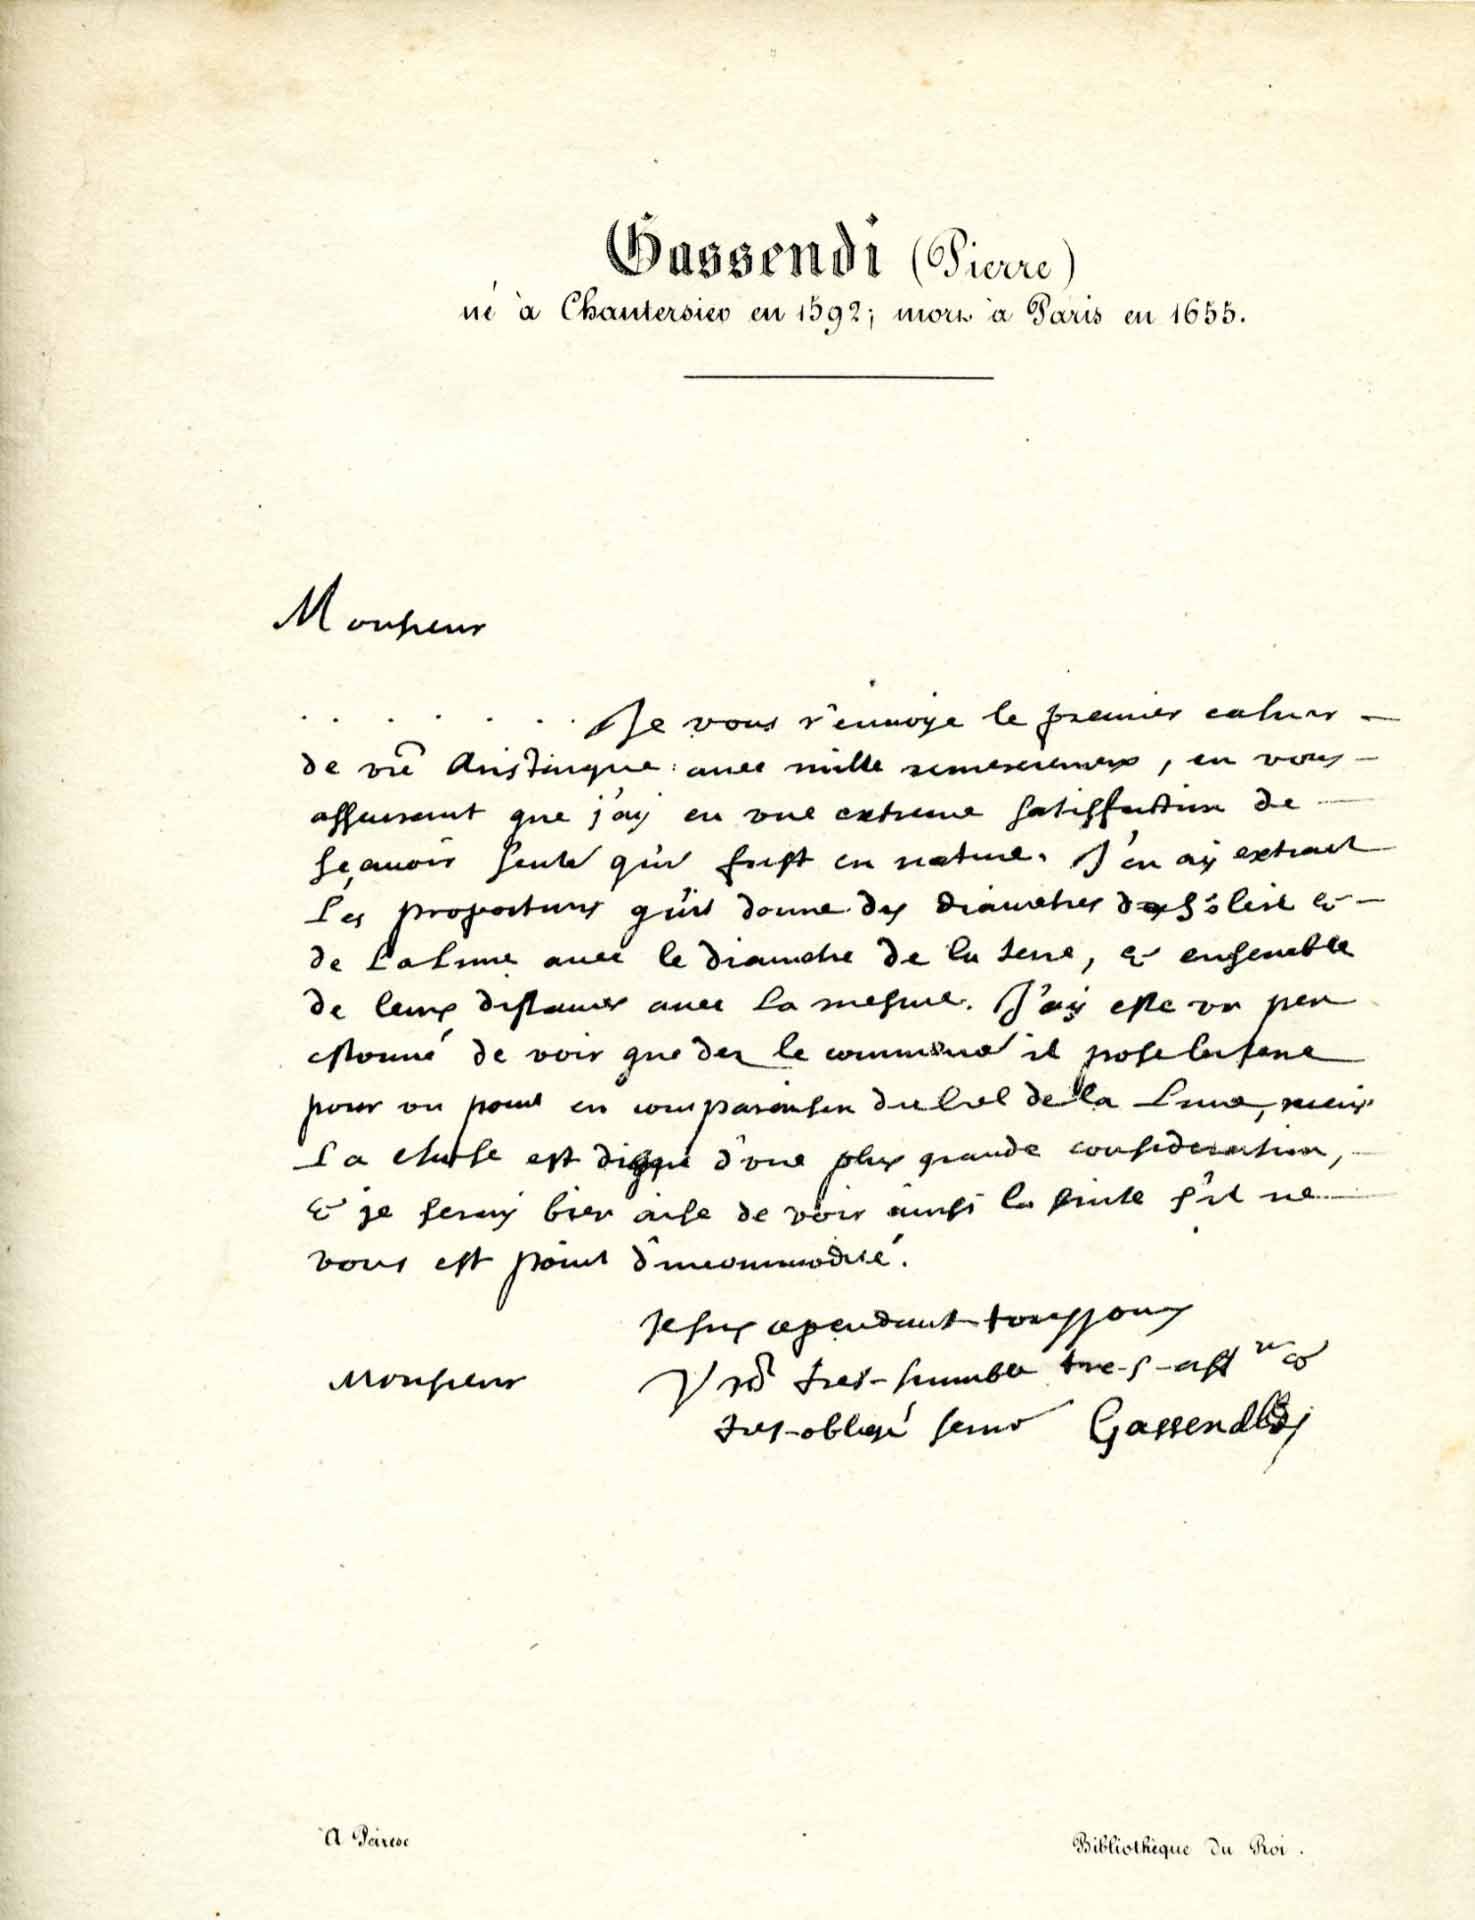 Gassendi (Pierre)
né à Chantersier en 1592; mort à Paris en 1655.
Monsieur
. . . . . . . Je vous r'enuoye le premier cahier
de vrẽ Aristarque auec mille remerciemens, en vous
asseurant que j'ay eu vne extreme satisfaction de
sçauoir seulemt qu'il fust en nature. J'en ay extraict
Les proportions qu'il donne des diametres du Soleil &
de La Lune auec le diametre de la terre, & ensemble
de leurs distances auec La mesme. J'ay esté vn peu
estonné de voir que dez le commencemt il pose la terre
pour vn point en comparaison du Ciel de la Lune, mais
La chose est digne d'vne plus grande consideration,
& je seray bien aise de voir ainsi la suite s'il ne
vous est point d'incommodité.
Je suis cependant tousjours
Monsieur Vrẽ tres-humble tres-aff &
tres-obligé serur Gassendi
A Peiresc
Bibliothèque du Roi.